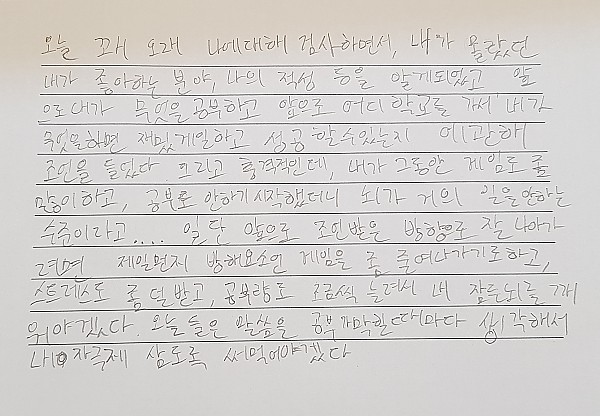 오늘 꽤 오래 나에대해 검사하면서, 내가 몰랐던
내가 좋아하는 분야, 나의 적성 등을 알게되었고 앞
으로 내가 무엇을 공부하고 앞으로 어디 학교를 가서 내가
무엇을하면 재밌게일하고 성공 할수있는지 에관해
조언을 들었다. 그리고 충격적인데, 내가 그동안 게임도 좀
많이하고, 공부도 안하기 시작했더니 뇌가 거의 일을안하는
수준이라고.... 일단 앞으로 조언받은 방향으로 잘 나아가
려면 제일먼저 방해요소인 게임을 좀 줄여나가기로하고,
스트레스도 좀 덜받고, 공부량도 조금씩 늘려서 내 잠든뇌를 깨
워야겠다. 오늘 들은 말씀을 공부가막힐때마다 생각해서
나의 자극제 삼도록 써먹어야겠다